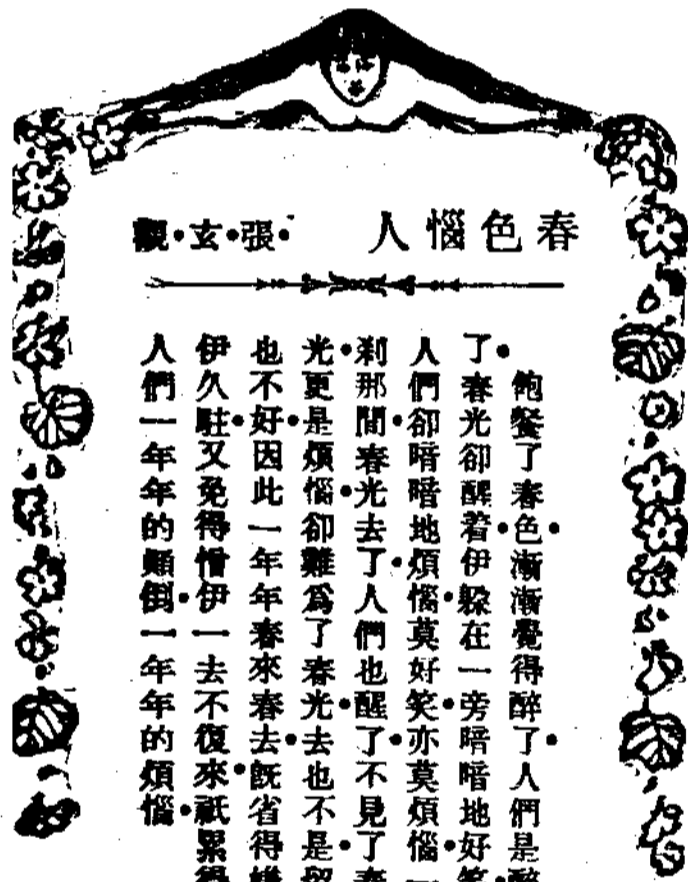 春色惱人　張•玄•觀
飽餐了春色•漸漸覺得醉了•人們是醉
了•春光卻醒着•伊躱在一旁暗暗地好笑•
人們卻暗暗地煩惱•莫好笑•亦莫煩惱•一
剎那間•春光去了•人們也醒了•不見了春
光•更是煩惱•卻難爲了春光•去也不是•留
也不好•因此一年年春來春去•旣省得嫌
伊久駐•又免得憎伊一去不復來•祇累得
人們一年年的顚倒•一年年的煩惱•